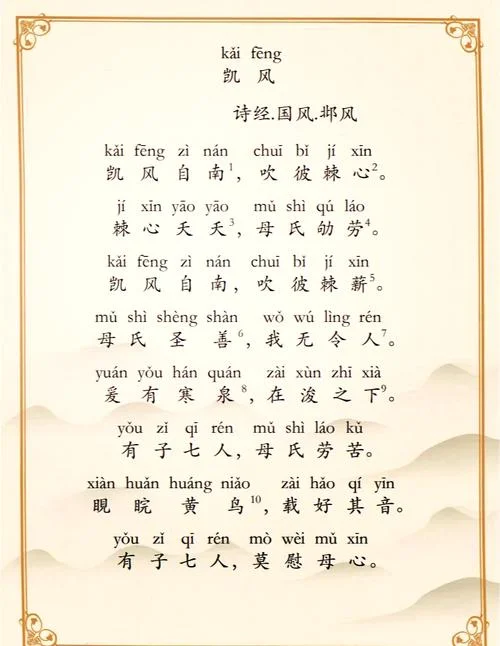 kǎi fēng
凯 风
诗经.国风.邶风
kǎi fēng zì nán chuī bǐ jí xīn
凯 风 自 南1, 吹 彼 棘 心2。
jí xīn yāo yāo mǔ shì qú láo
棘 心 夭 夭3, 母 氏 劬 劳4。
kǎi fēng zì nán chuī bǐ jí xīn
凯 风 自 南, 吹 彼 棘 薪5。
mǔ shì shèng shàn wǒ wú lìng rén
母 氏 圣 善6, 我 无 令 人7。
yuán yǒu hán quán zài xùn zhī xià
爰 有 寒 泉8, 在 浚 之 下9。
yǒu zǐ qī rén mǔ shì láo kǔ
有 子 七 人, 母 氏 劳 苦。
xiàn huǎn huáng niǎo zài hǎo qí yīn
睍 睆 黄 鸟10, 载 好 其 音。
yǒu zǐ qī rén mò wèi mǔ xīn
有 子 七 人, 莫 慰 母 心。